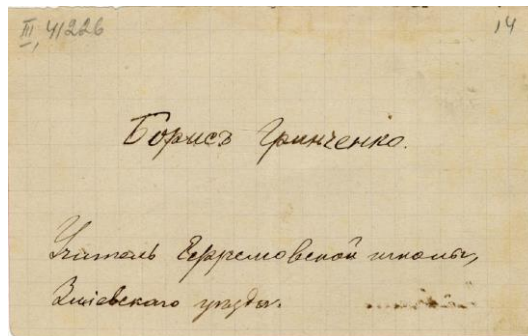 III, 41226
14
Борисъ Гринченко.
Учитель Ефремовской школы,
Зміевскаго уѣзда.